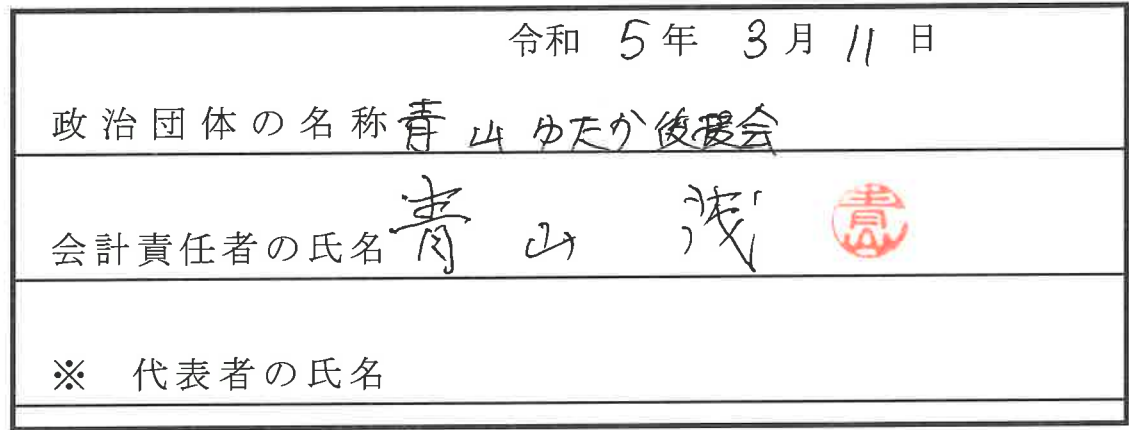 令和 5年 3月 11日
政治団体の名称 青山ゆたか後援会
会計責任者の氏名 青山 浅 青山
※ 代表者の氏名